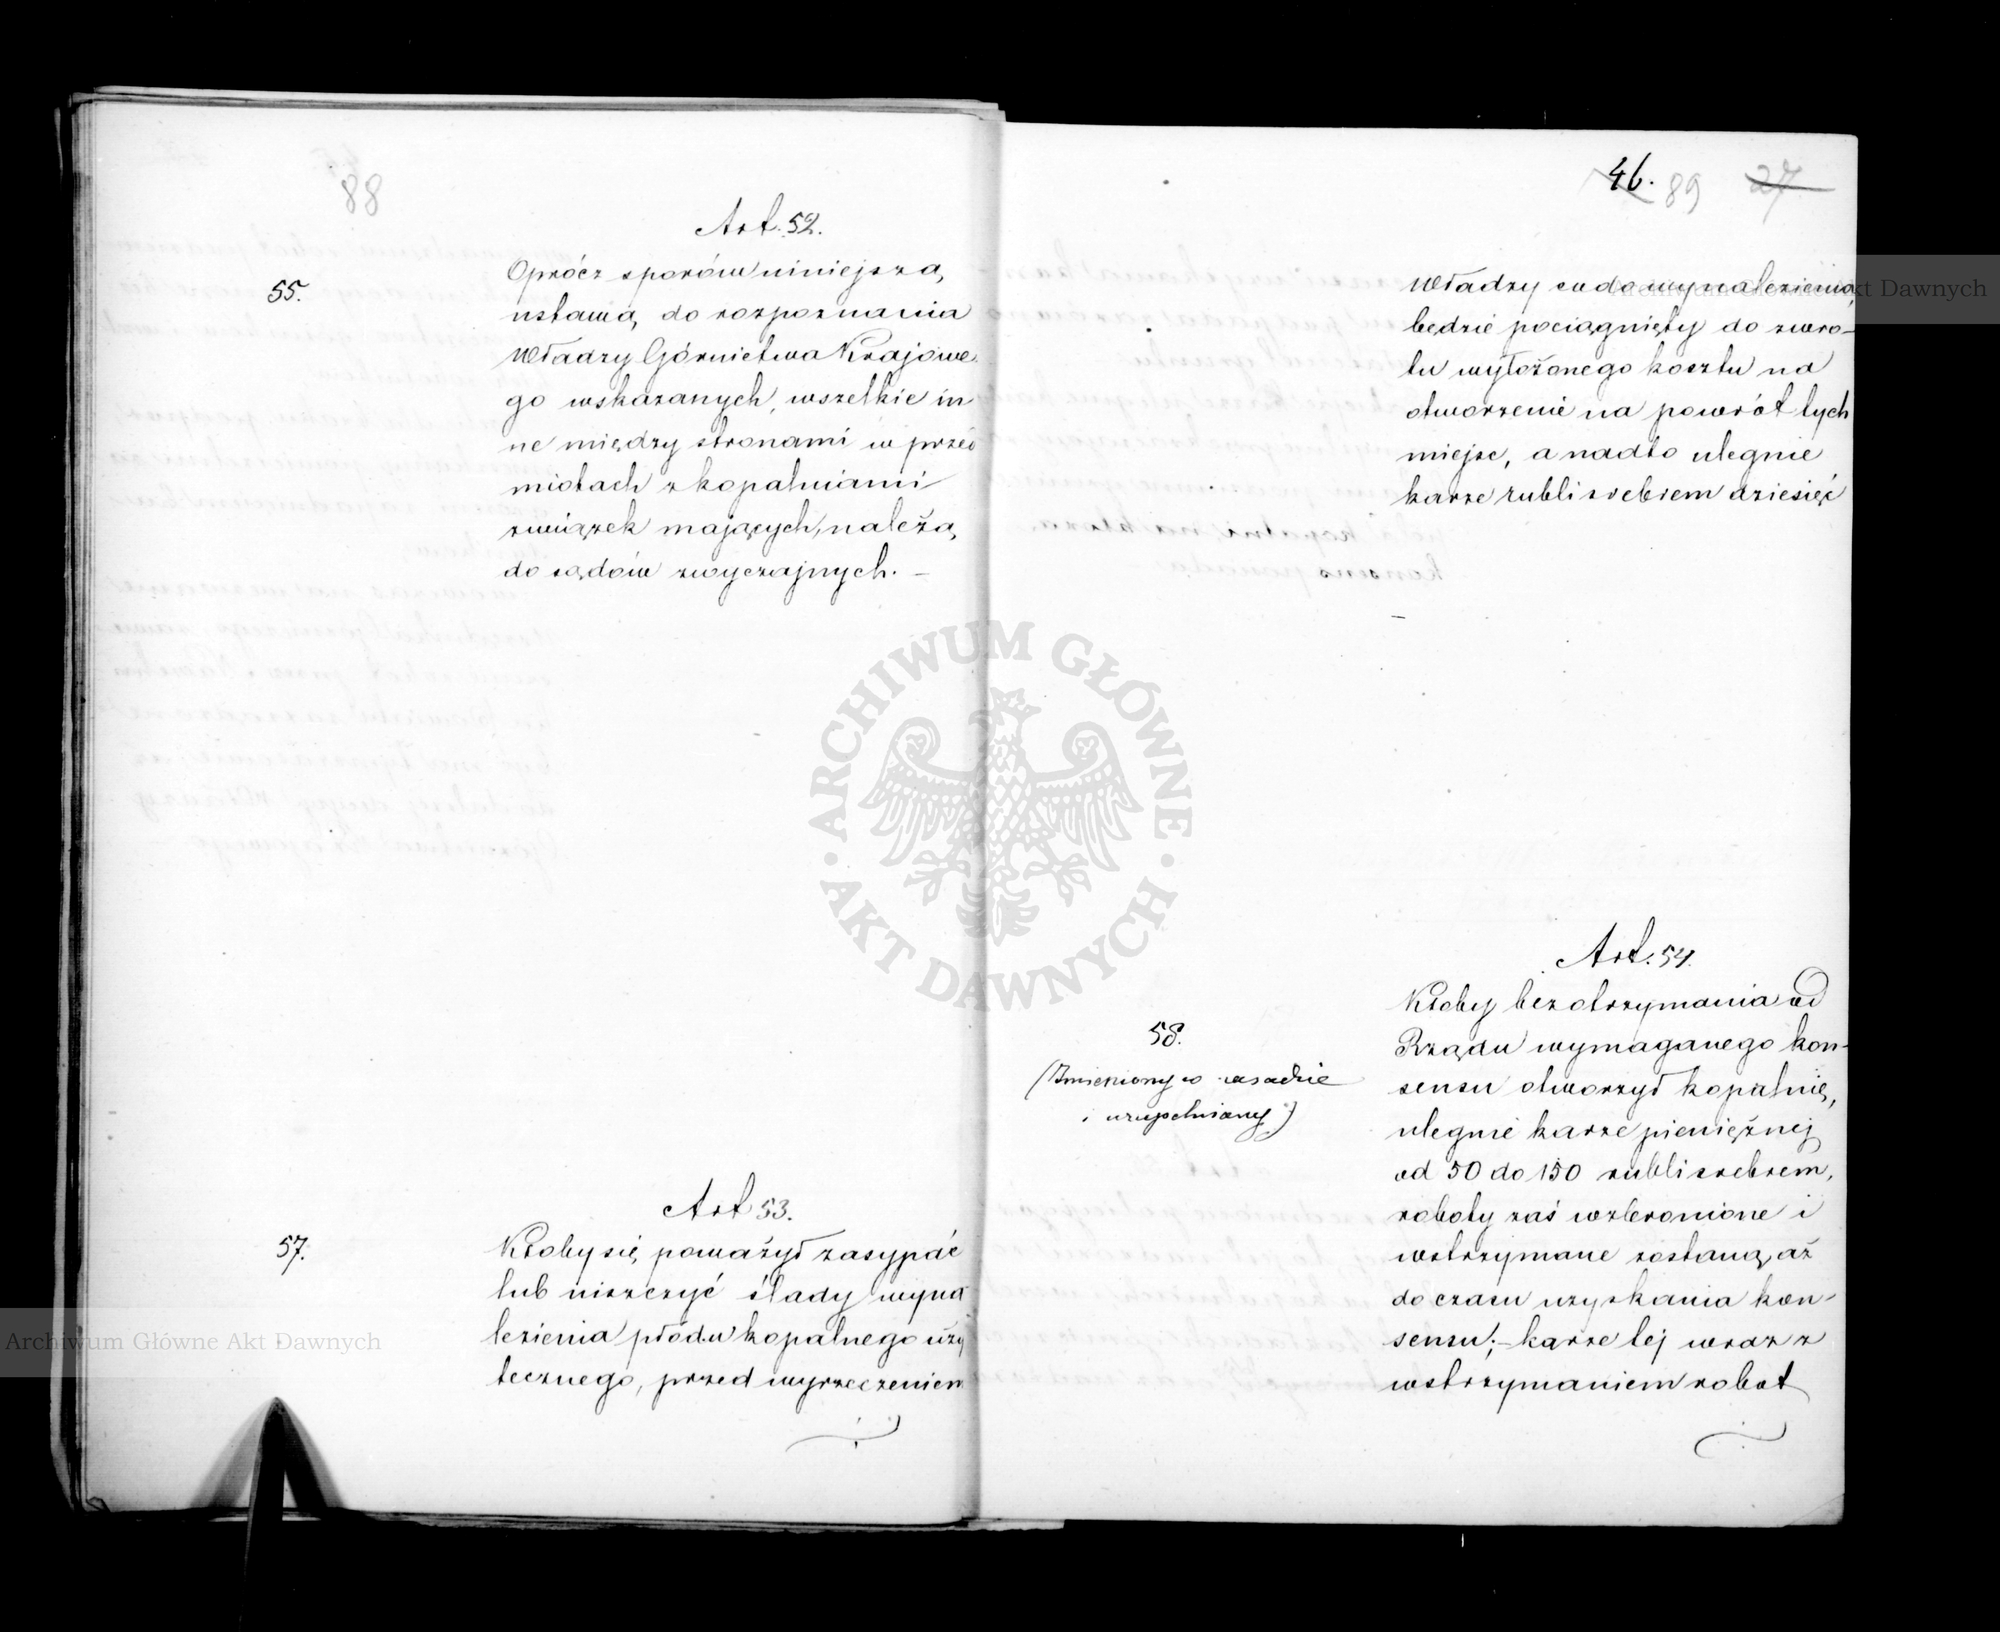 88
Art. 52.
55.
Oprócz sporów niniejszą
ustawą do rozpoznania
Władzy Górnictwa Krajowe-
go wskazanych, wszelkie in
ne między stronami w przed
miotach z kopalniami
związek mających, należą
do sądów zwyczajnych. –
Art 53.
57.
Ktoby się poważył zasypać
lub niszczyć ślady wyna
lezienia płodu kopalnego uży
tecznego, przed wyrzeczeniem
46. 89 27
Władzy co do wynalezienia,
będzie pociągnięty do zwro-
tu wyłożonego kosztu na
otworzenie na powrót tych
miejsc, a nadto ulegnie
karze rubli srebrem dziesięć
Art. 54.
58.
(Zmieniony w zasadzie
i uzupełniany)
Ktoby bez otrzymania od
Rządu wymaganego kon-
sensu otworzył kopalnię,
ulegnie karze pieniężnej
od 50 do 150 rubli srebrem,
roboty zaś wzbronione i
wstrzymane zostaną, aż
do czasu uzyskania kon-
sensu; – karze tej wraz z
wstrzymaniem robot
ARCHIWUM GŁÓWNE
AKT DAWNYCH
Archiwum Główne Akt Dawnych
Archiwum Główne Akt Dawnych